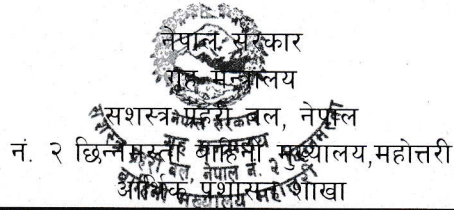 नेपाल सरकार
गृह मन्त्रालय
सशस्त्र प्रहरी बल, नेपाल
नं. २ छिन्नमस्ता बाहिनी मुख्यालय,महोत्तरी
आर्थिक प्रशासन शाखा